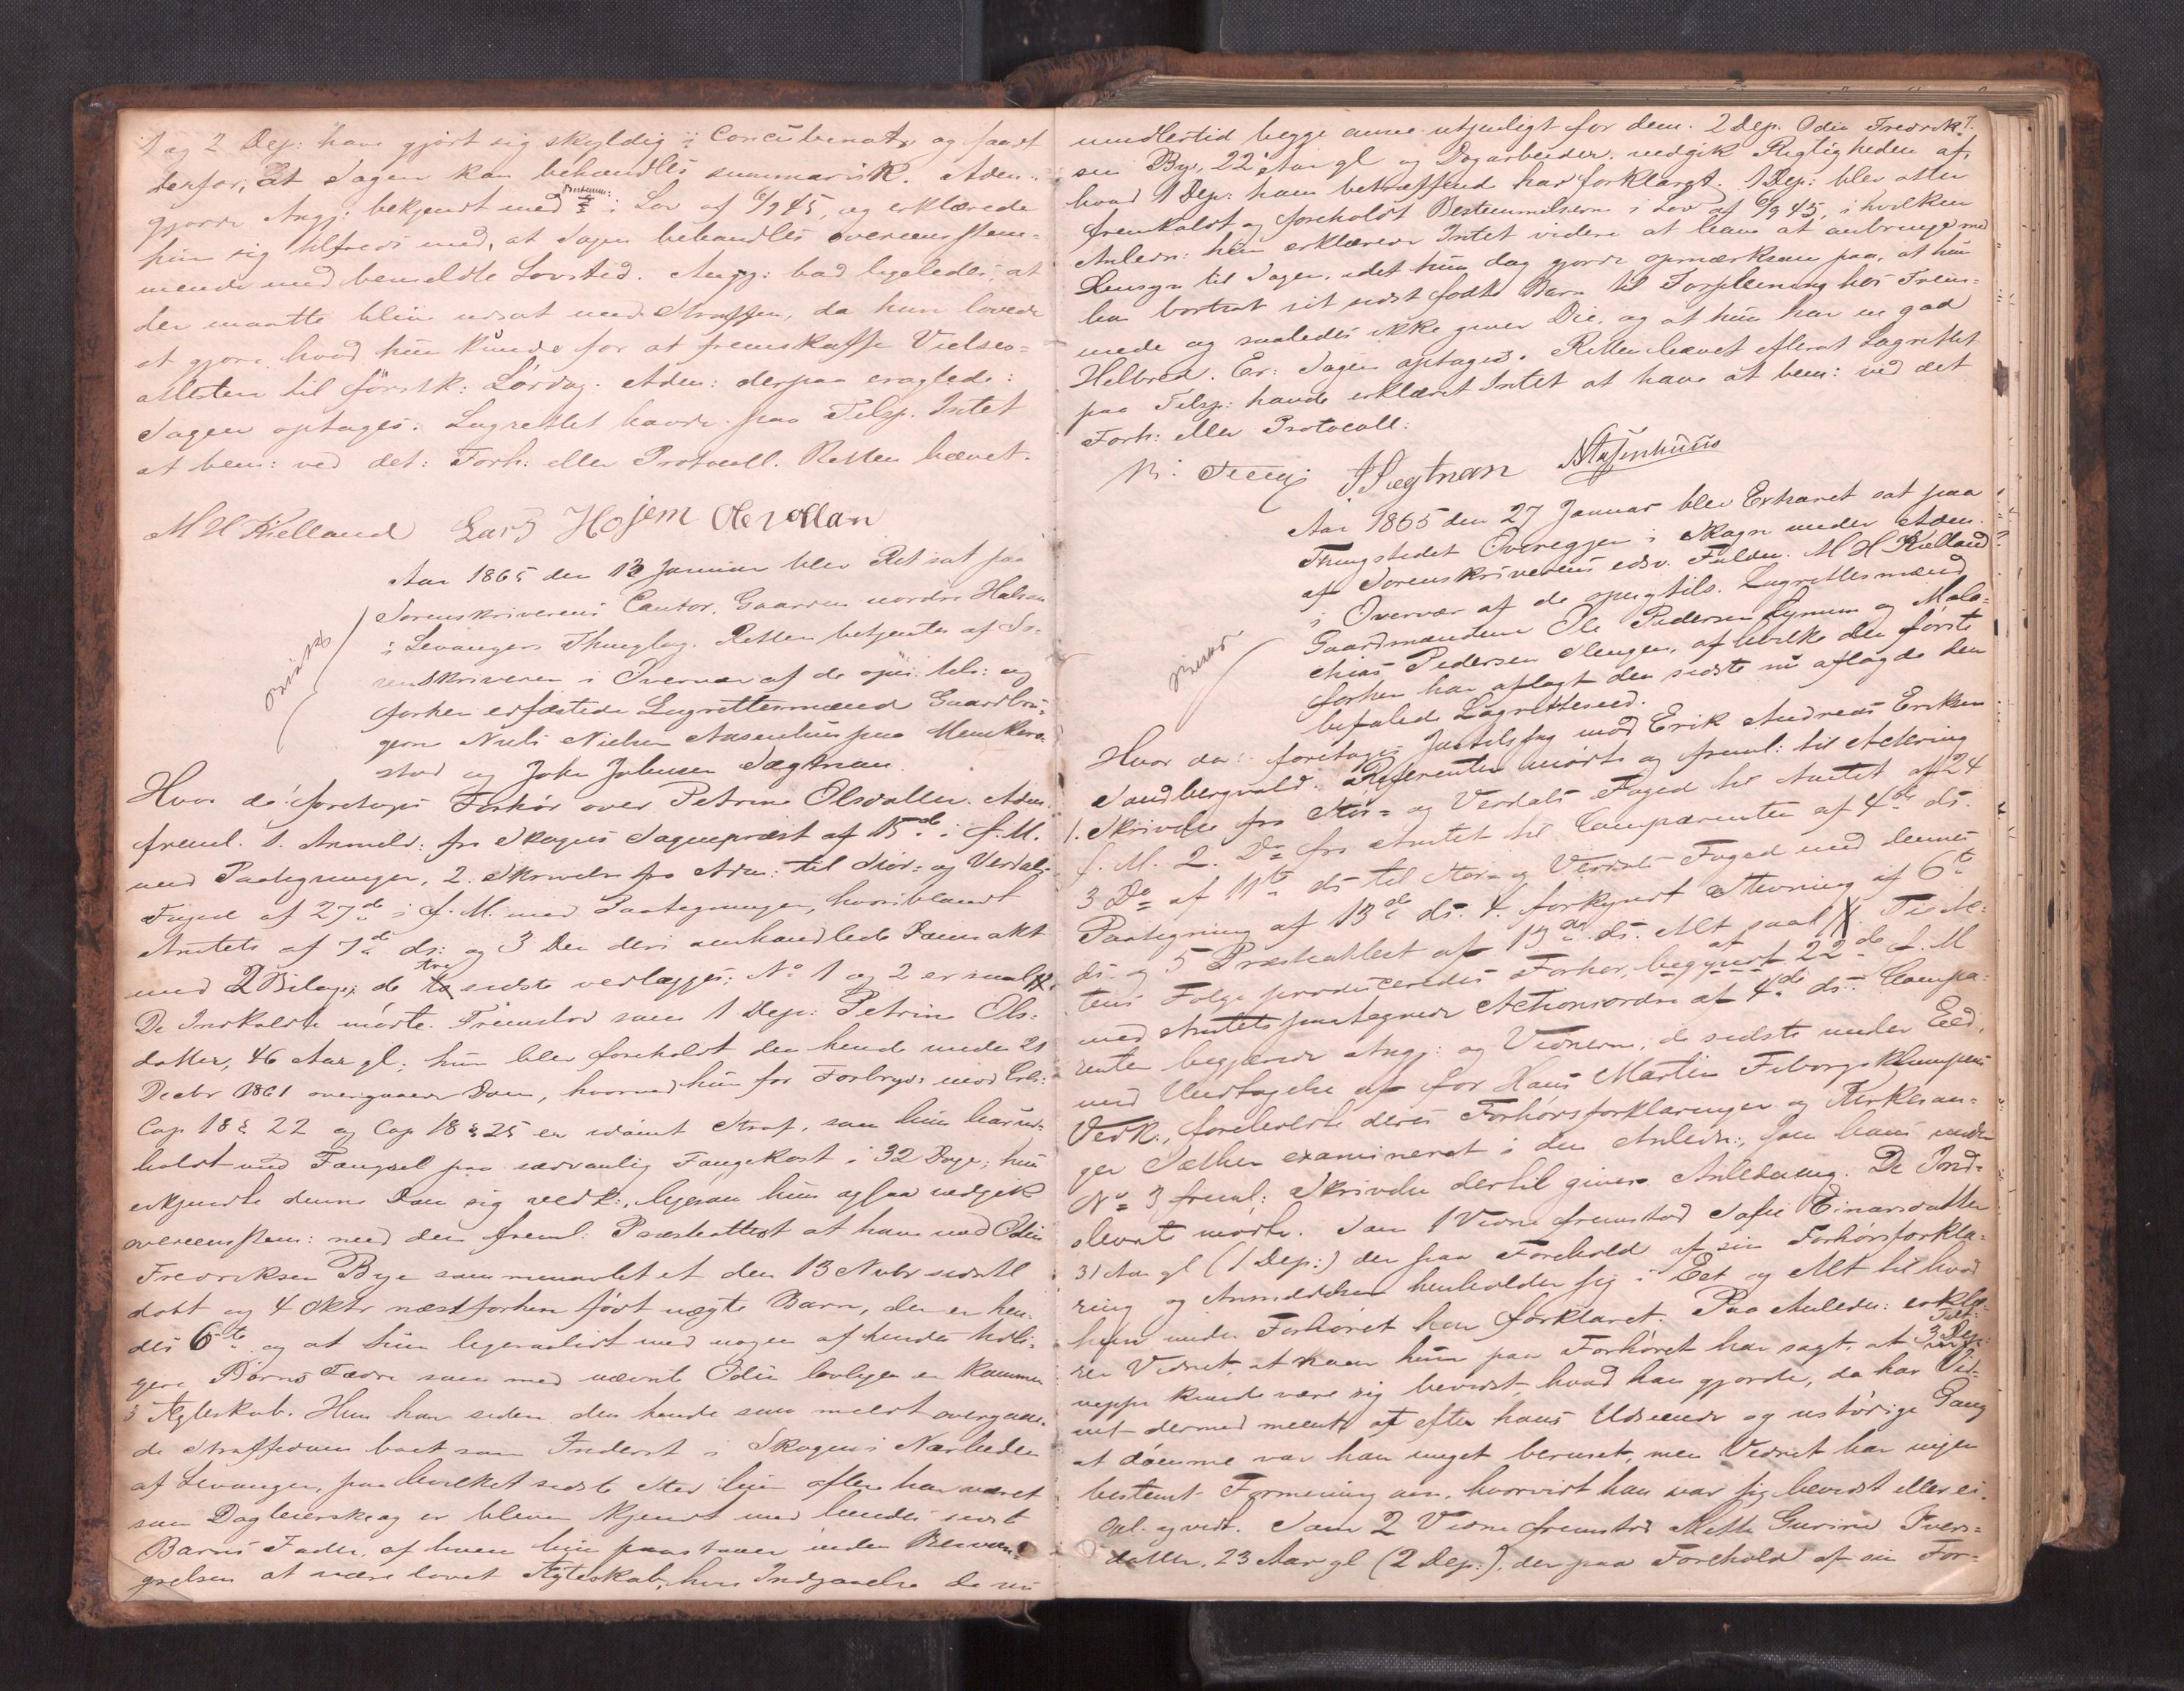 1 og 2 Dep: have gjort sig skyldig i Concubinat og paastod
derfor, at Sagen kan behandles summarisk. Aden.
gjorde Angj: bekjendt med Bestemm: i Lov af 6/9 45, og erklærede
hun sig tilfreds med, at Sagen behandles overeensstem-
mende med bemeldte Lovsted. Angj: bad ligeledes, at
der maatte blive udsat med Straffen, da hun lovede
at gjøre hvad hun kunde for at fremskaffe Vielses-
attesten til førstk: Lørdag. Aden: derpaa eragtede:
Sagen optages. Lagrettet havde paa Tilsp. Intet
at bem: ved det: Forh: eller Protocoll. Retten hævet.
M H Kielland Lars Hojem Ole Vollan
Aar 1865 den 13 Januar blev Ret sat paa
Sorenskriverens Contor, Gaarden nordre Halsan
i Levangers Thinglag. Retten betjentes af So-
renskriveren i Overvær af de opn: tils: og
forhen edfæstede Lagrettesmænd Gaardbru-
gerne Niels Nielsen Aasenhuus paa Munkero-
stad og John Johnsen Sægtnan.
Hvor da: foretoges Forhør over Petrine Olsdatter. Aden.
freml. 1. Anmeld: fra Skogns Sognepræst af 15de i f. M.
med Paategninger, 2. Skrivelse fra Aden: til Stør- og Verdals
Foged af 27de i f. M. med Paategninger, hvoriblandt
Amtets af 7de ds: og 3 Den deri omhandlede Domsakt
med 2 Bilage; de tre sidste vedlægges; No 1 og 2 er saal
De Indkaldte mødte. Fremstod som 1 Dep: Petrine Ols-
datter, 46 Aar gl; hun blev foreholdt den hende under 21
Decbr 1861 overgaaede Dom, hvorved hun for Forbryd: mod Crl:
Cap 18 § 22 og Cap 18 § 25 er idømt Straf, som hun har ud-
holdt med Fængsel paa sædvanlig Fangekost i 32 Dage; hun
erkjendte denne Dom sig vedk:, ligesom hun ogsaa vedgik
overeensstem: med den freml: Præsteattest at have med Odin
Fredriksen Bye sammenavlet et den 13 Novbr sidstl
døbt og 4 Oktr næstforhen født uægte Barn, der er hen-
des 6te og at hun ligesaalidt med nogen af hendes tidli-
gere Børns Fædre som med nævnte Odin lovligen er kommen
i Ægteskab. Hun har siden den hende som meldt overgaae-
de Straffedom boet som Inderst i Skogn i Nærheden
af Levanger, paa hvilket sidste Sted hun oftere har været
som Dagleierske og er bleven kjendt med hendes sidst
Barns Fader, af hvem hun paastaaer under Besvan-
grelsen at være lovet Ægteskab, hvis Indgaaelse de nu
imidlertid begge anse utjenligt for dem. 2 Dep. Odin Fredrik-
sen Bye, 22 Aar gl og Dagarbeider, vedgik Rigtigheden af,
hvad 1 Dep: ham betræffende har forklaret. 1 Dep: blev atter
fremkaldt og foreholdt Bestemmelserne i Lov af 6/9 45, i hvilken
Anledn: hun erklærede Intet videre at have at anbringe med
Hensyn til Sagen, idet hun dog gjorde opmærksom paa, at hun
har bortsat sit sidst fødte Barn til Forpleining hos Frem-
mede og saaledes ikke giver Die, og at hun har en god
Helbred. Er: Sagen optages. Retten hævet efterat Lagrettet
paa Tilsp: havde erklæret Intet at have at bem: ved det
Forh: eller Protocoll:
J Sægtnan
Aar 1865 den 27 Januar blev Extraret sat paa
Thingstedet Overeggen i Skogn under Aden.
af Sorenskriverens edsv. Fuldm. M H Kielland
i Overvær af de opn. og tils. Lagrettesmænd
Gaardmændene Ole Pedersen Rynum og Mala-
chias Pedersen Slengen, af hvilke den første
forhen har aflagt den sidste nu aflagde den
befalede Lagretteseed.
Hvor da: foretoges Justitssag mod Erik Andreas Eriksen
Sandbergvald. Referenten mødte og freml: til Actering
1. Skrivelse fra Stør- og Verdals Foged til Amtet af 24
f. M. 2. Do fra Amtet til Comparenten af 4de ds.
3 Do af 11te ds til Stør- og Verdals Foged med dennes
Paategning af 13de ds. 4. forkyndt Stevning af 6te
ds. og 5 Præsteattest af 19de ds. Alt saal. Til Ac-
tens Følge produceredes Forhør, begyndt 22de f. M
med Amtets paategnede Actionsordre af 4de ds. Compa-
renten begjærede Angj: og Vidnerne, de sidste under Eed,
med Undtagelse af for Hans Martin Fiborgsklumpens
Vedk:, foreholdte deres Forhørsforklaringer og Kirkesan-
ger Sæther examineret i den Anledn:, som hans under
No 3 freml: Skrivelse dertil giver Anledning. De Ind-
stevnte mødte. Som 1 Vidne fremstod Sofie Einarsdatter
31 Aar gl (1 Dep:) der paa Forehold af sin Forhørsforkla-
ring og Anmeldelsen henholder sig i Eet og Alt til hvad
hun under Forhøret har forklaret. Paa Anledn: erklæ-
rer Vidnet, at naar hun paa Forhøret har sagt, at Tilt:
neppe kunde være sig bevidst, hvad han gjorde, da har Vid-
net dermed meent, at efter hans Udseende og ustødige Gang
at dømme var han meget beruset, men Vidnet har ingen
bestemt Formening om, hvorvidt han var sig bevidst eller ei.
Opl. og vedt. Som 2 Vidne fremstod Mette Gurine Ivers-
datter, 23 Aar gl (2 Dep:), der paa Forehold af sin For-